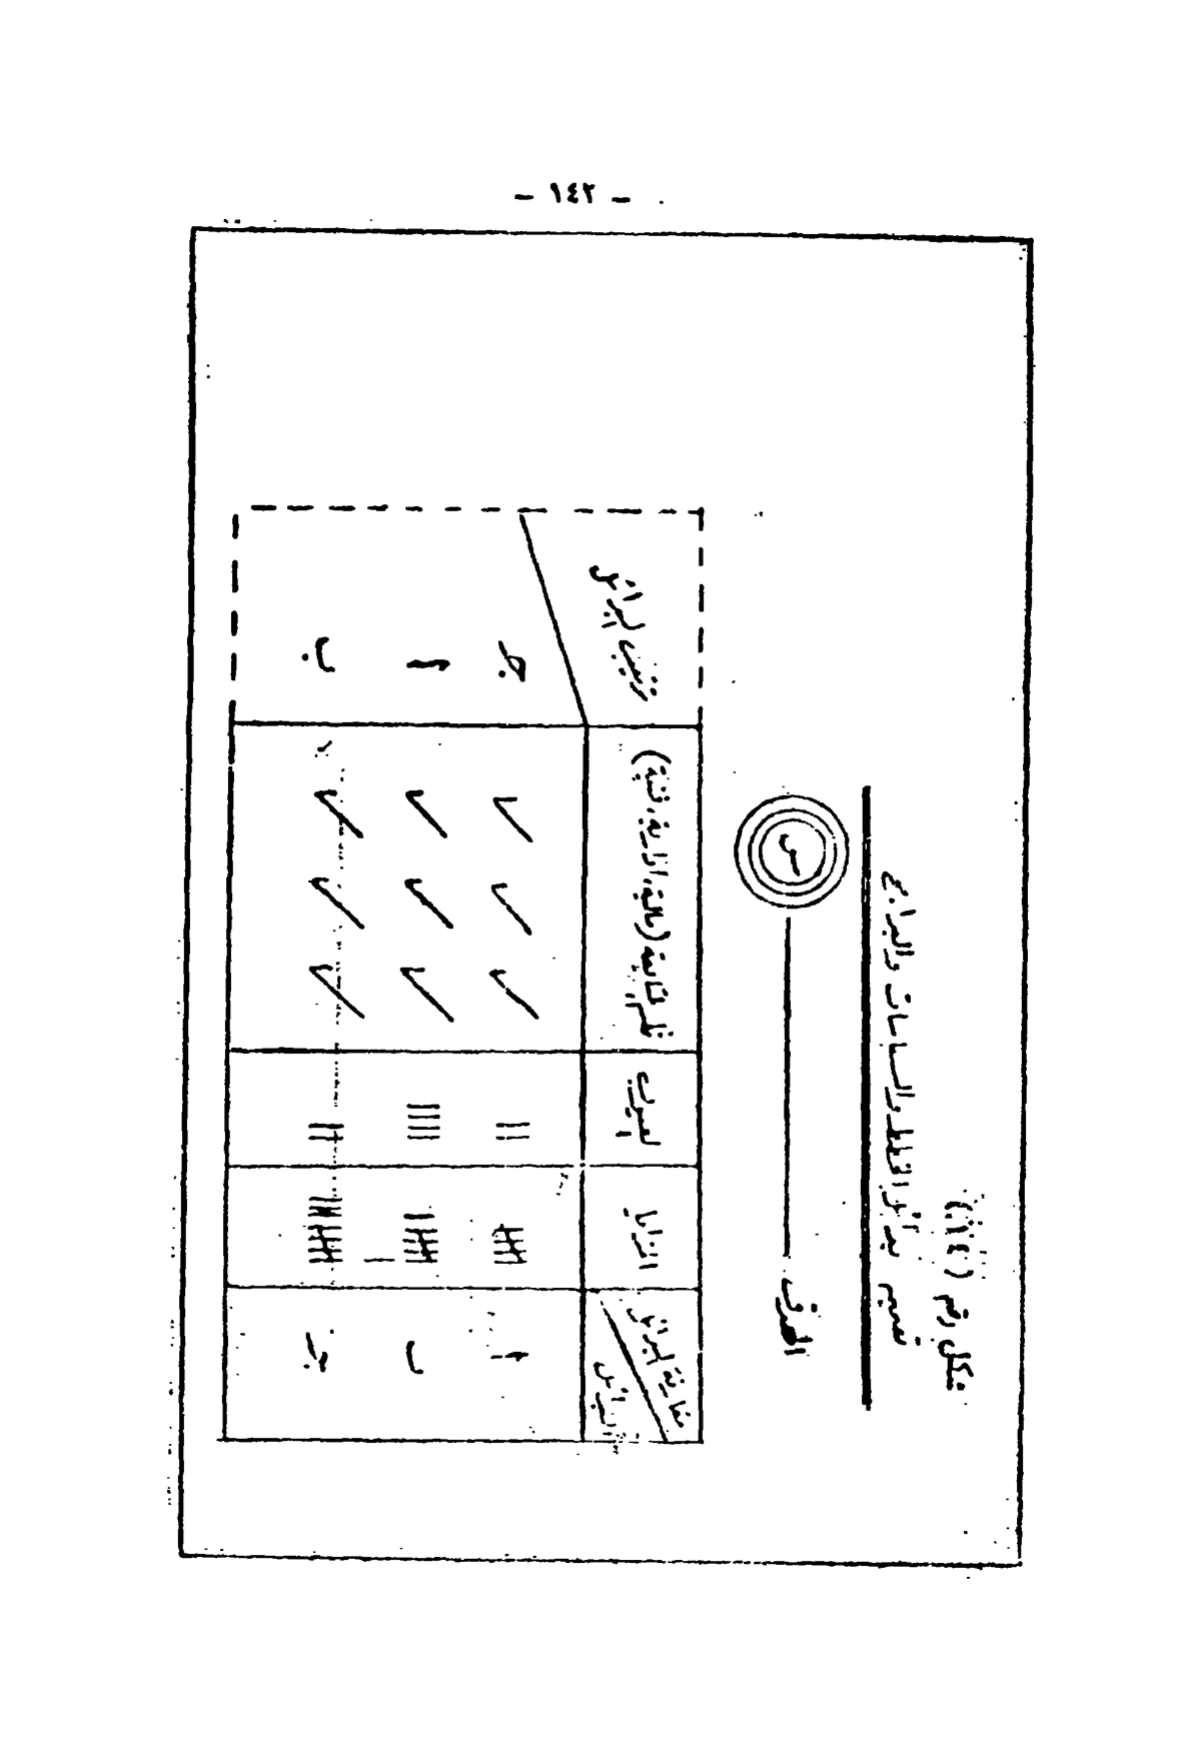 - ١٤٢ -
شكل رقم (١٤)
تقييم بدائل الخطط والسياسات والبرامج
الهدف س
مقارنة البدائل البدائل المزايا العيوب نظم رقابية (مالية، إدارية، فنية) ترتيب البدائل
أ ✓ ✓ ✓ جـ
ب ✓ ✓ ✓ أ
جـ ✓ ✓ ✓ ب